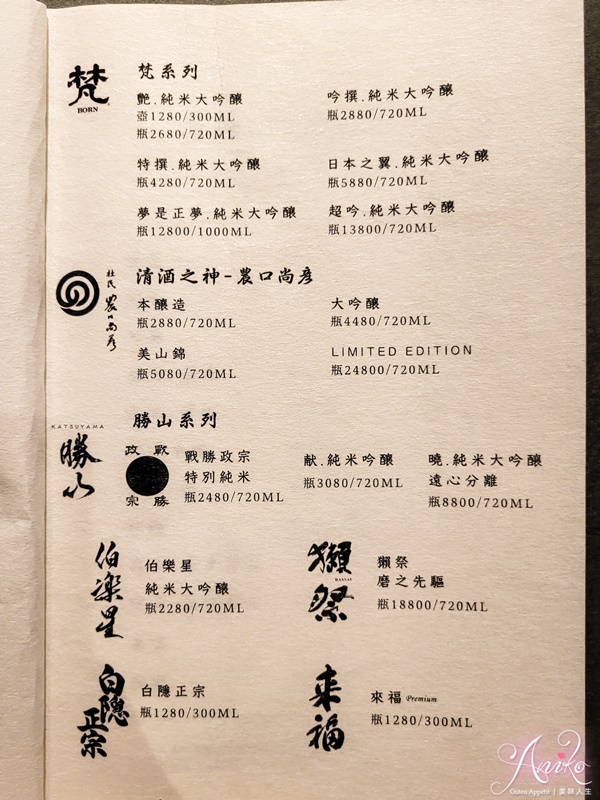 梵
BORN
梵系列
艶.純米大吟釀
壺1280/300ML
瓶2680/720ML
吟撰.純米大吟釀
瓶2880/720ML
特撰.純米大吟釀
瓶4280/720ML
日本之翼.純米大吟釀
瓶5880/720ML
夢是正夢.純米大吟釀
瓶12800/1000ML
超吟.純米大吟釀
瓶13800/720ML
杜氏 農口尚彥
清酒之神-農口尚彥
本釀造
瓶2880/720ML
大吟釀
瓶4480/720ML
美山錦
瓶5080/720ML
LIMITED EDITION
瓶24800/720ML
KATSUYAMA
勝山
勝山系列
政 戰
宗 勝
戰勝政宗
特別純米
瓶2480/720ML
献.純米吟釀
瓶3080/720ML
曉.純米大吟釀
遠心分離
瓶8800/720ML
伯楽星
伯樂星
純米大吟釀
瓶2280/720ML
獺祭
DASSAI
獺祭
磨之先驅
瓶18800/720ML
白隱正宗
白隱正宗
瓶1280/300ML
来福
來福 Premium
瓶1280/300ML
Aniko
Guten Appetit | 美味人生